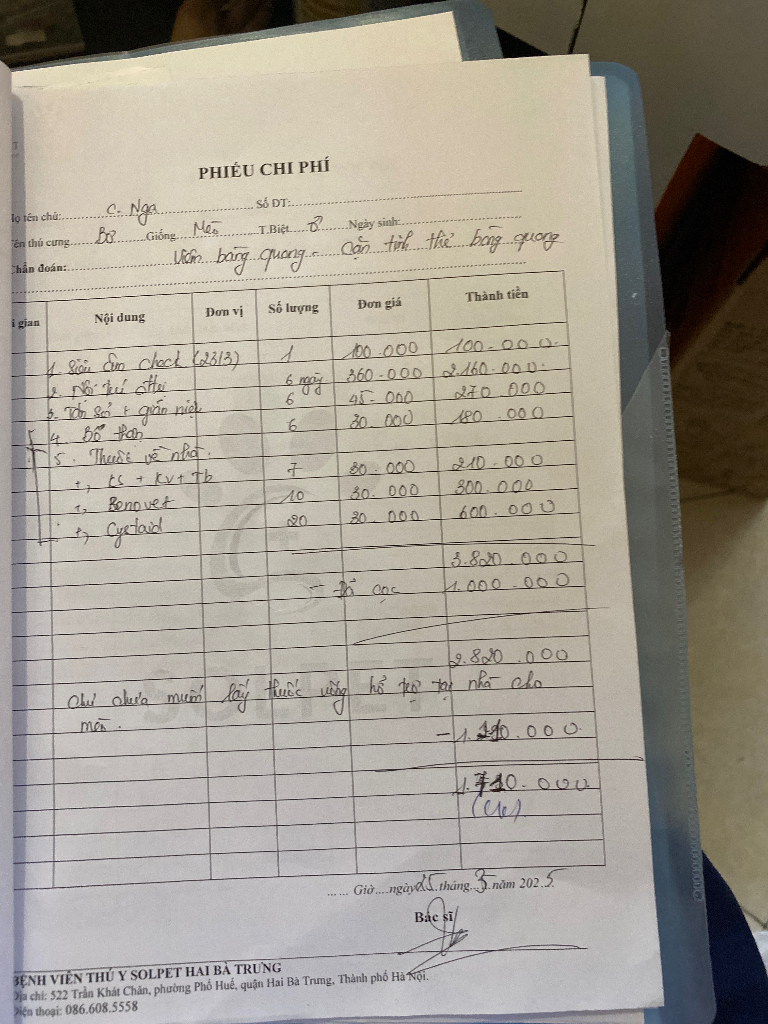 PHIẾU CHI PHÍ
Họ tên chủ: C. Nga Số ĐT:
Tên thú cưng Bơ Giống Mèo T.Biệt Ngày sinh:
Chẩn đoán: Viêm bàng quang - cặn tinh thể bàng quang
i gian Nội dung Đơn vị Số lượng Đơn giá Thành tiền
1. Siêu âm check (23/3) 1 100.000 100.000
2. Nội trú 6 ngày 360.000 2.160.000
3. 6 45.000 270.000
4. Bổ 6 30.000 180.000
5. Thuốc về nhà.
+, KS + KV + Tb 7 30.000 210.000
+, Benovet 10 30.000 300.000
+, Cystaid 20 30.000 600.000
3.820.000
- Đã cọc 1.000.000
2.820.000
Chủ chưa muốn lấy thuốc uống hỗ trợ tại nhà cho
mèo.
- 1.110.000
1.710.000
...... Giờ....ngày 25 tháng 3 năm 2025
Bác sĩ
BỆNH VIỆN THÚ Y SOLPET HAI BÀ TRƯNG
Địa chỉ: 522 Trần Khát Chân, phường Phố Huế, quận Hai Bà Trưng, Thành phố Hà Nội.
Điện thoại: 086.608.5558
SOLPET